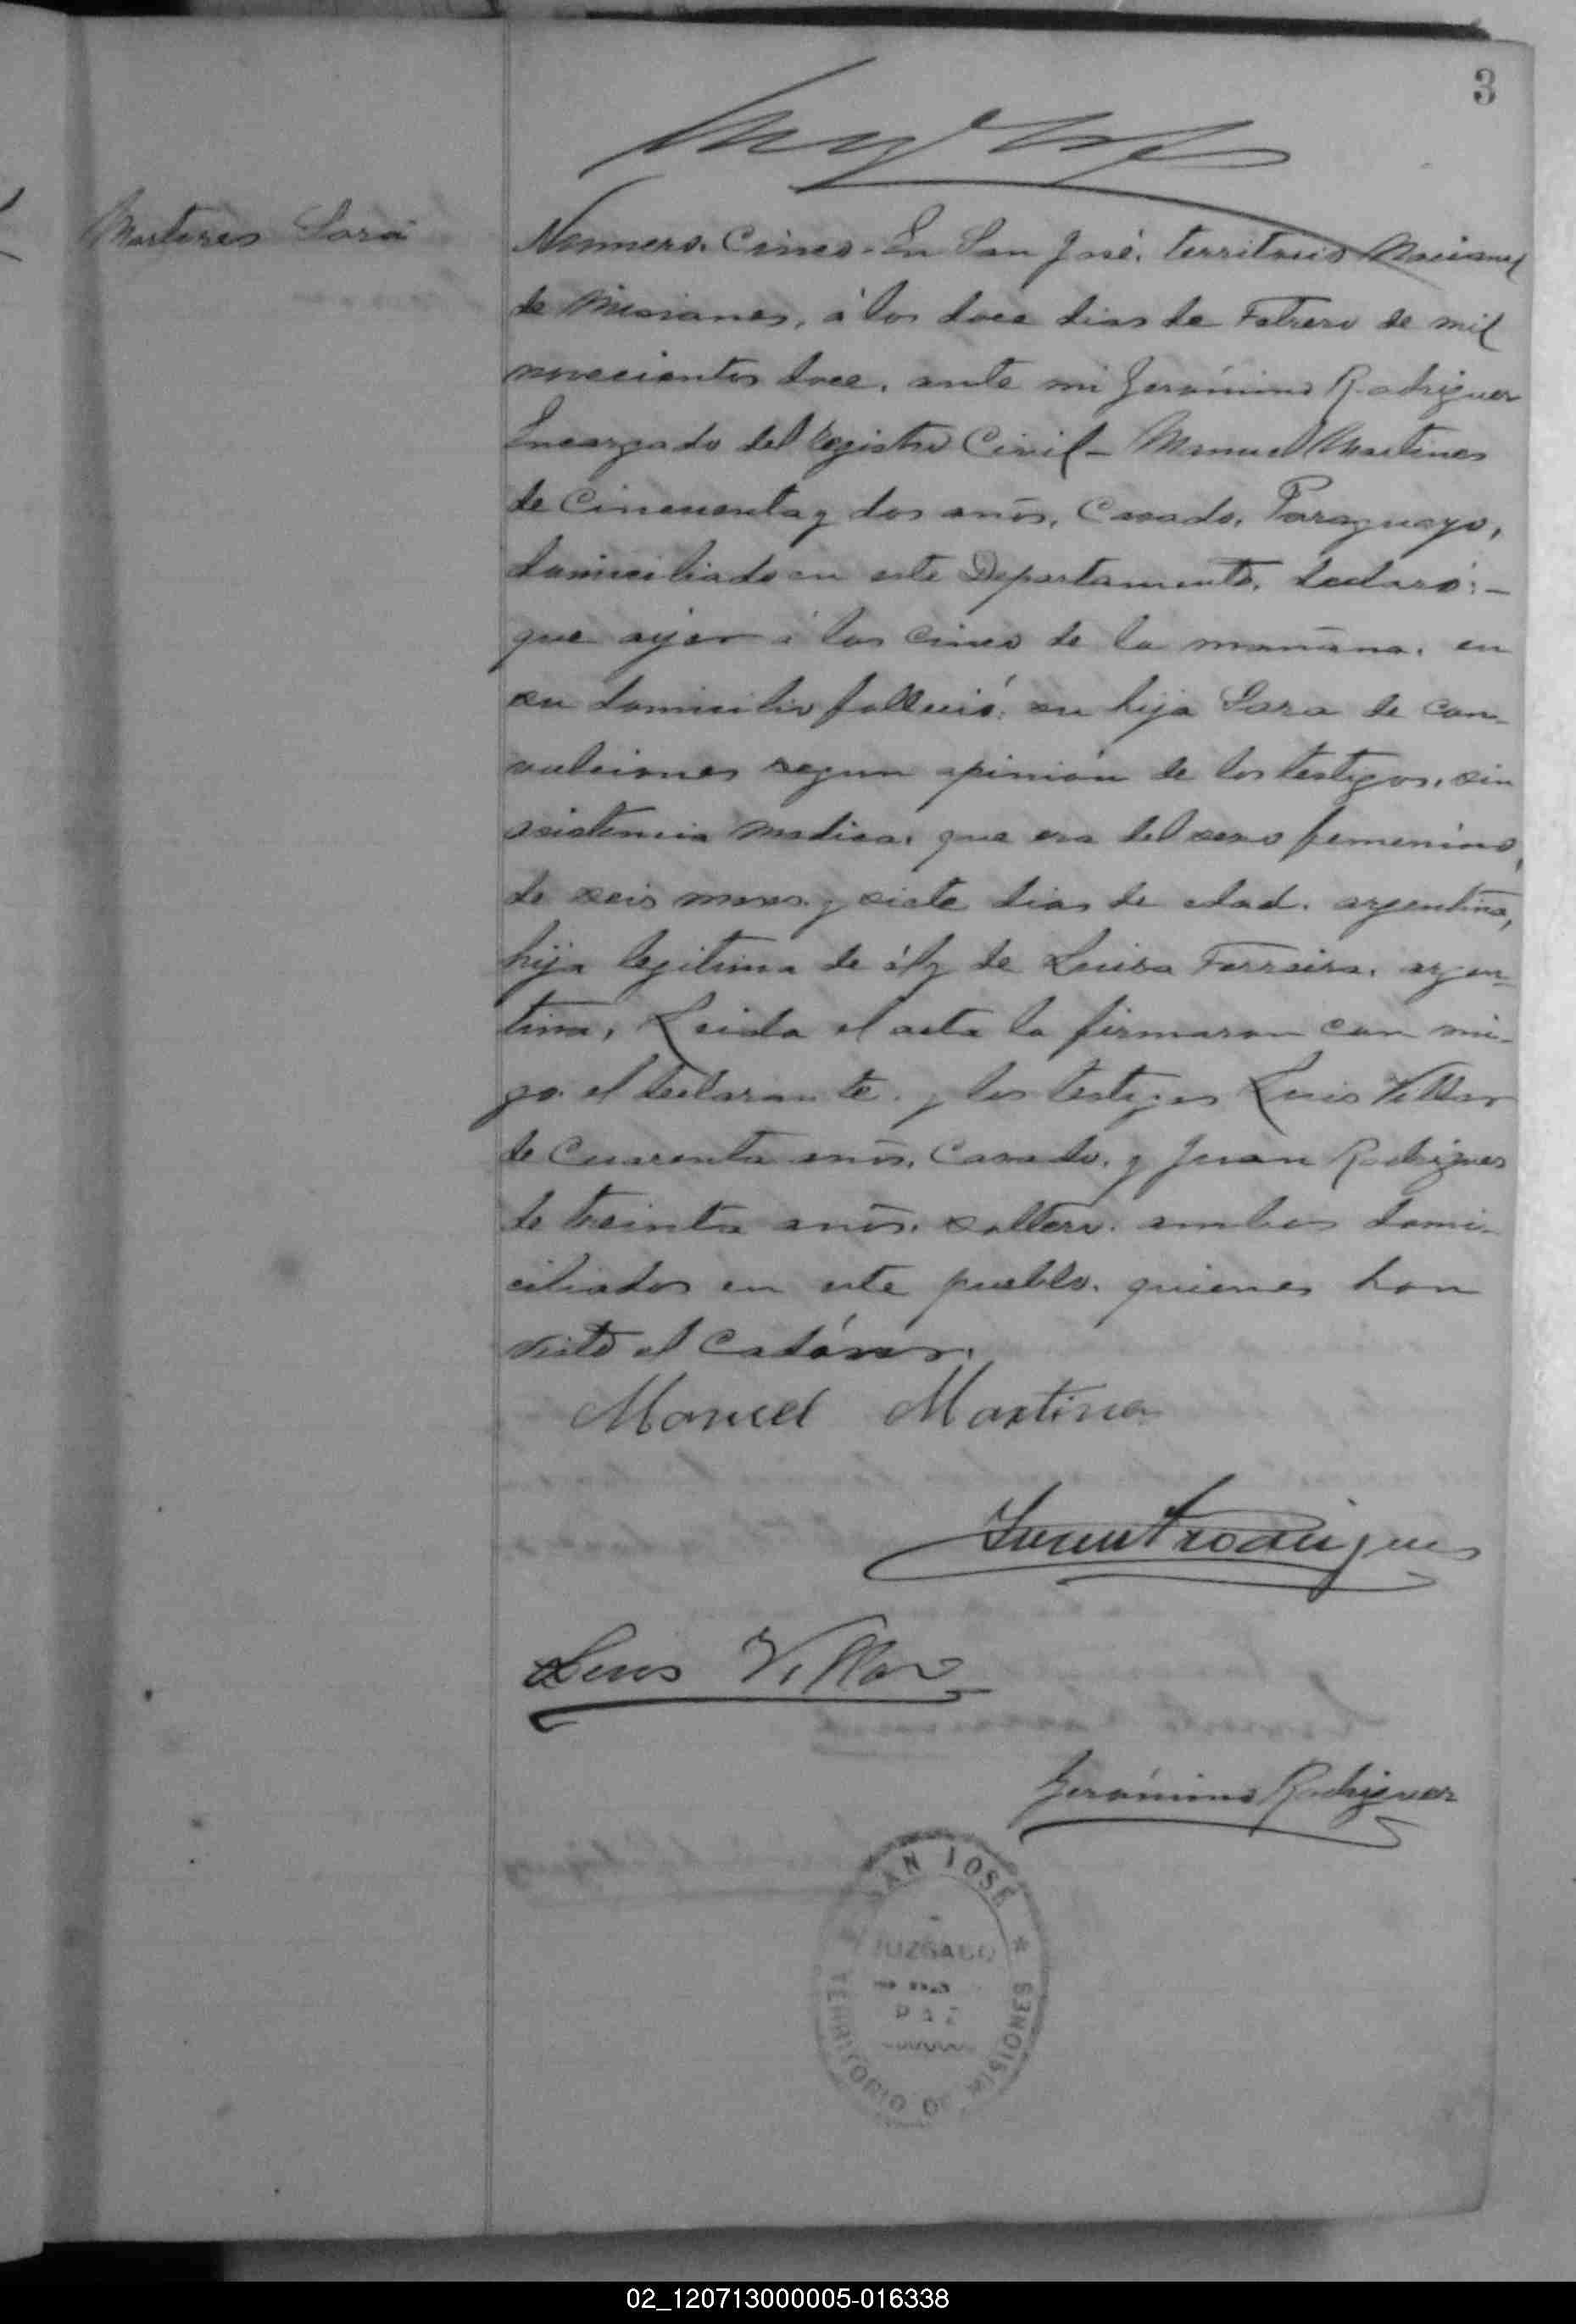 3
Martires Sara
Numero. Cinco. En San José, territorio Nacional
de Misiones, á los doce dias de Febrero de mil
novecientos doce, ante mi Jerónimo Rodriguez
Encargado del Registro Civil - Manuel Martines
de Cincuenta y dos años, Casado, Paraguayo,
domiciliado en este Departamento, declaró: -
que ayer á las cinco de la mañana, en
su domicilio falleció: su hija Sara de con-
vulciones segun opinión de los testigos, sin
asistencia medica, que era del sexo femenino,
de seis meses y siete dias de edad, argentina,
hija legitima de él y de Luisa Ferreira, argen-
tina, Leida el acta la firmaron con mi-
go el declarante, y los testigos Luis Villar
de Cuarenta años, Casado, y Juan Rodrigues
de treinta años, soltero, ambos domi-
ciliados en este pueblo, quienes han
visto el Cadáver.
Manuel Martines
Juan Rodrigues
Luis Villar
Jerónimo Rodriguez
SAN JOSÉ
JUZGADO
DE
PAZ
TERRITORIO DE MISIONES
02_120713000005-016338